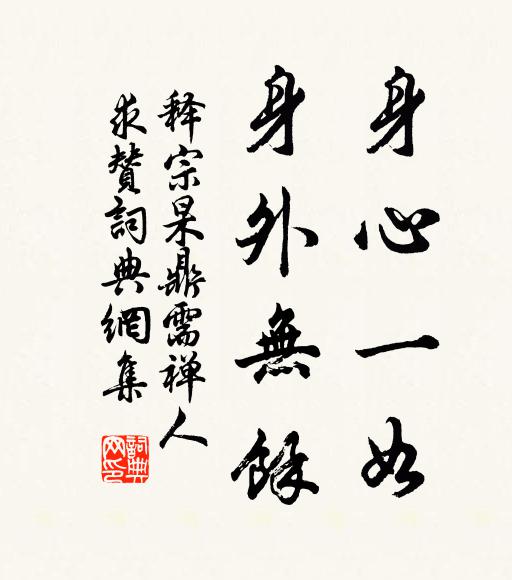 身心一如
身外無餘
释宗杲鼎需禅人
求贊詞典網集
詞典網印